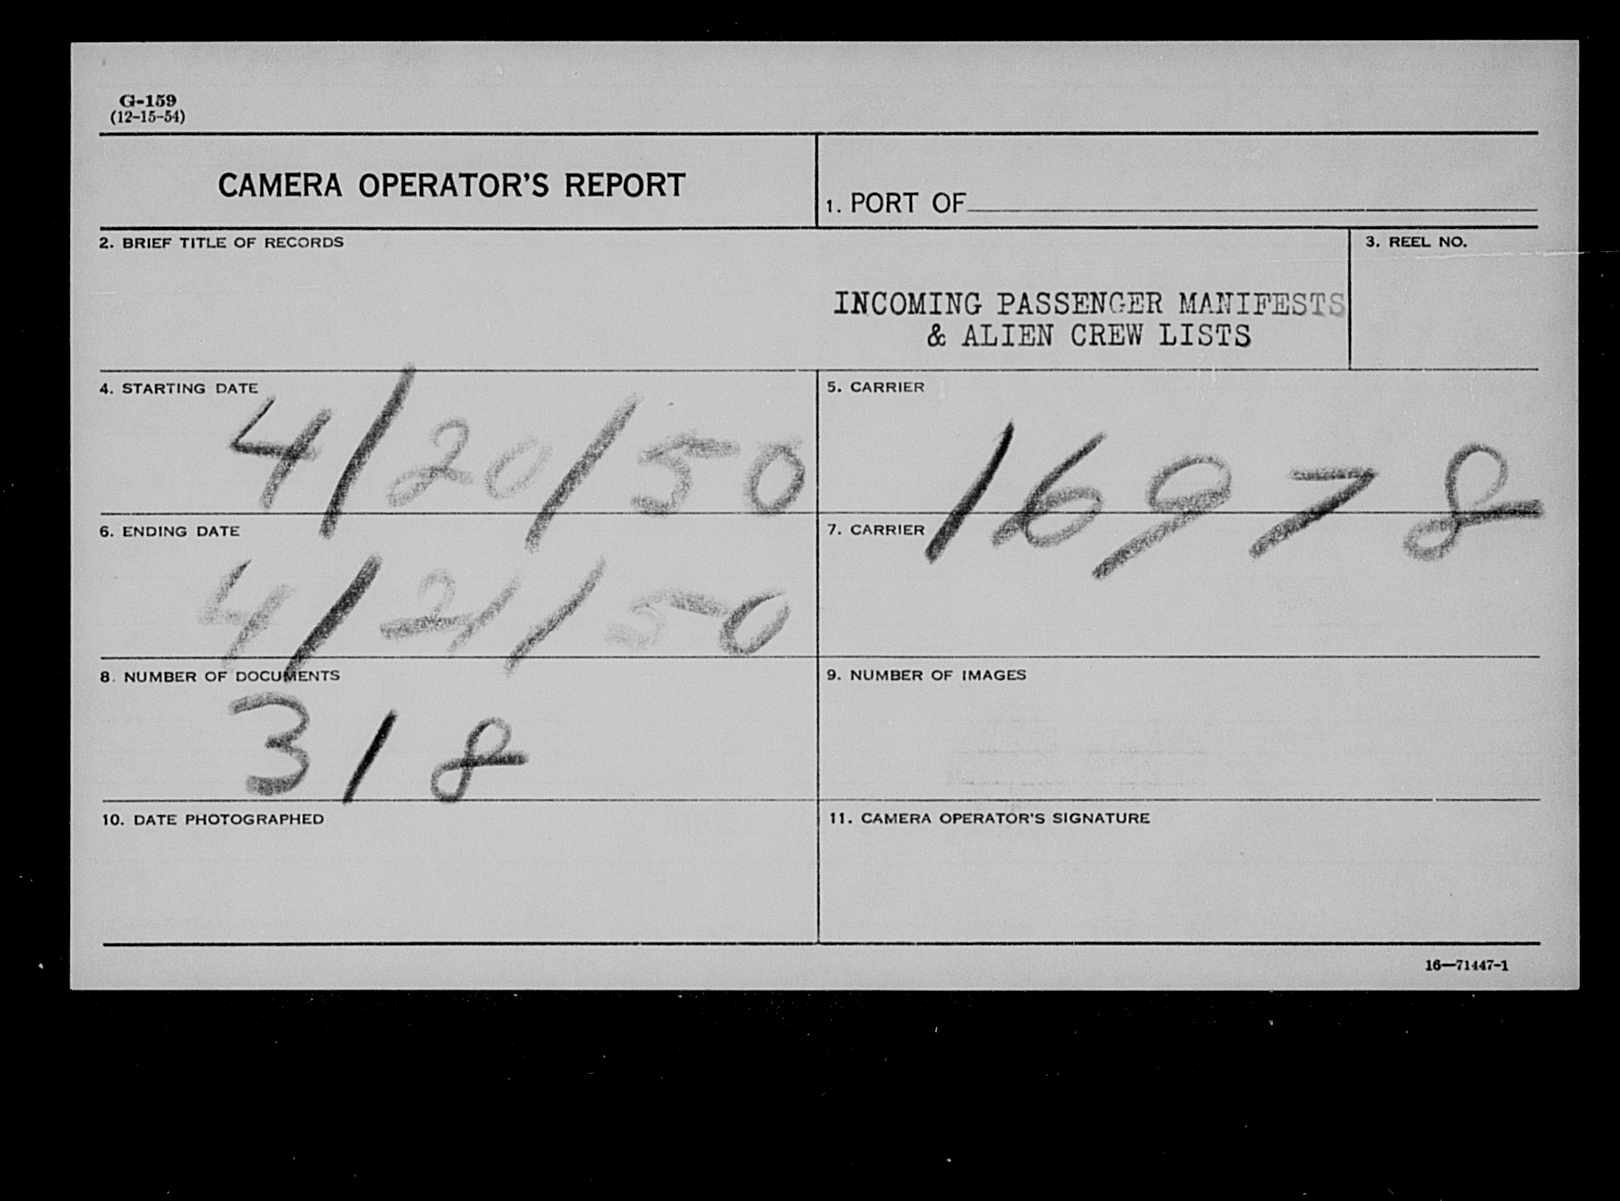 G-159
(12-15-54)
CAMERA OPERATOR'S REPORT
1. PORT OF
2. BRIEF TITLE OF RECORDS
INCOMING PASSENGER MANIFESTS
& ALIEN CREW LISTS
3. REEL NO.
4. STARTING DATE
4/20/50
5. CARRIER
16978
6. ENDING DATE
4/21/50
7. CARRIER
8. NUMBER OF DOCUMENTS
318
9. NUMBER OF IMAGES
10. DATE PHOTOGRAPHED
11. CAMERA OPERATOR'S SIGNATURE
16—71447-1